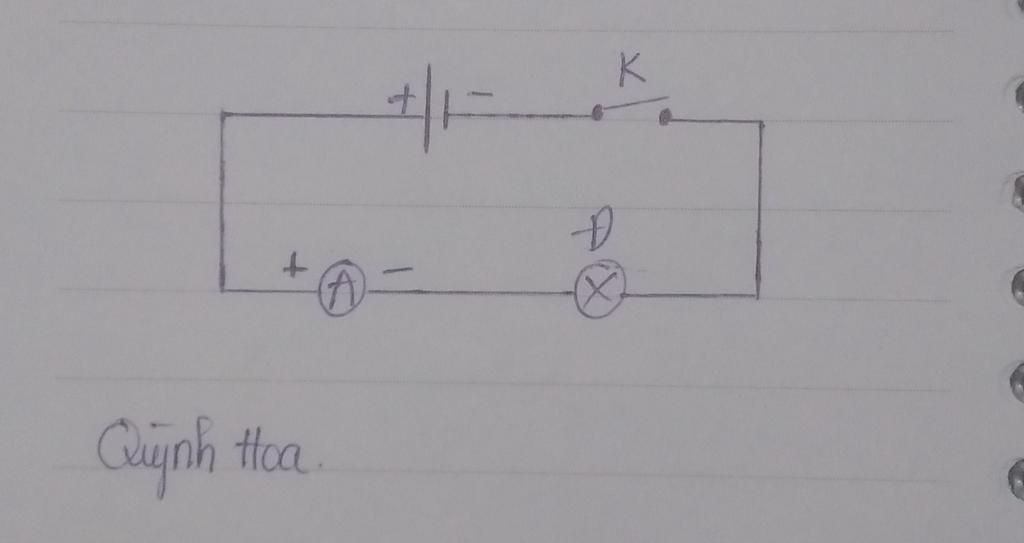 K
+ -
Đ
+ A -
Quỳnh Hoa.